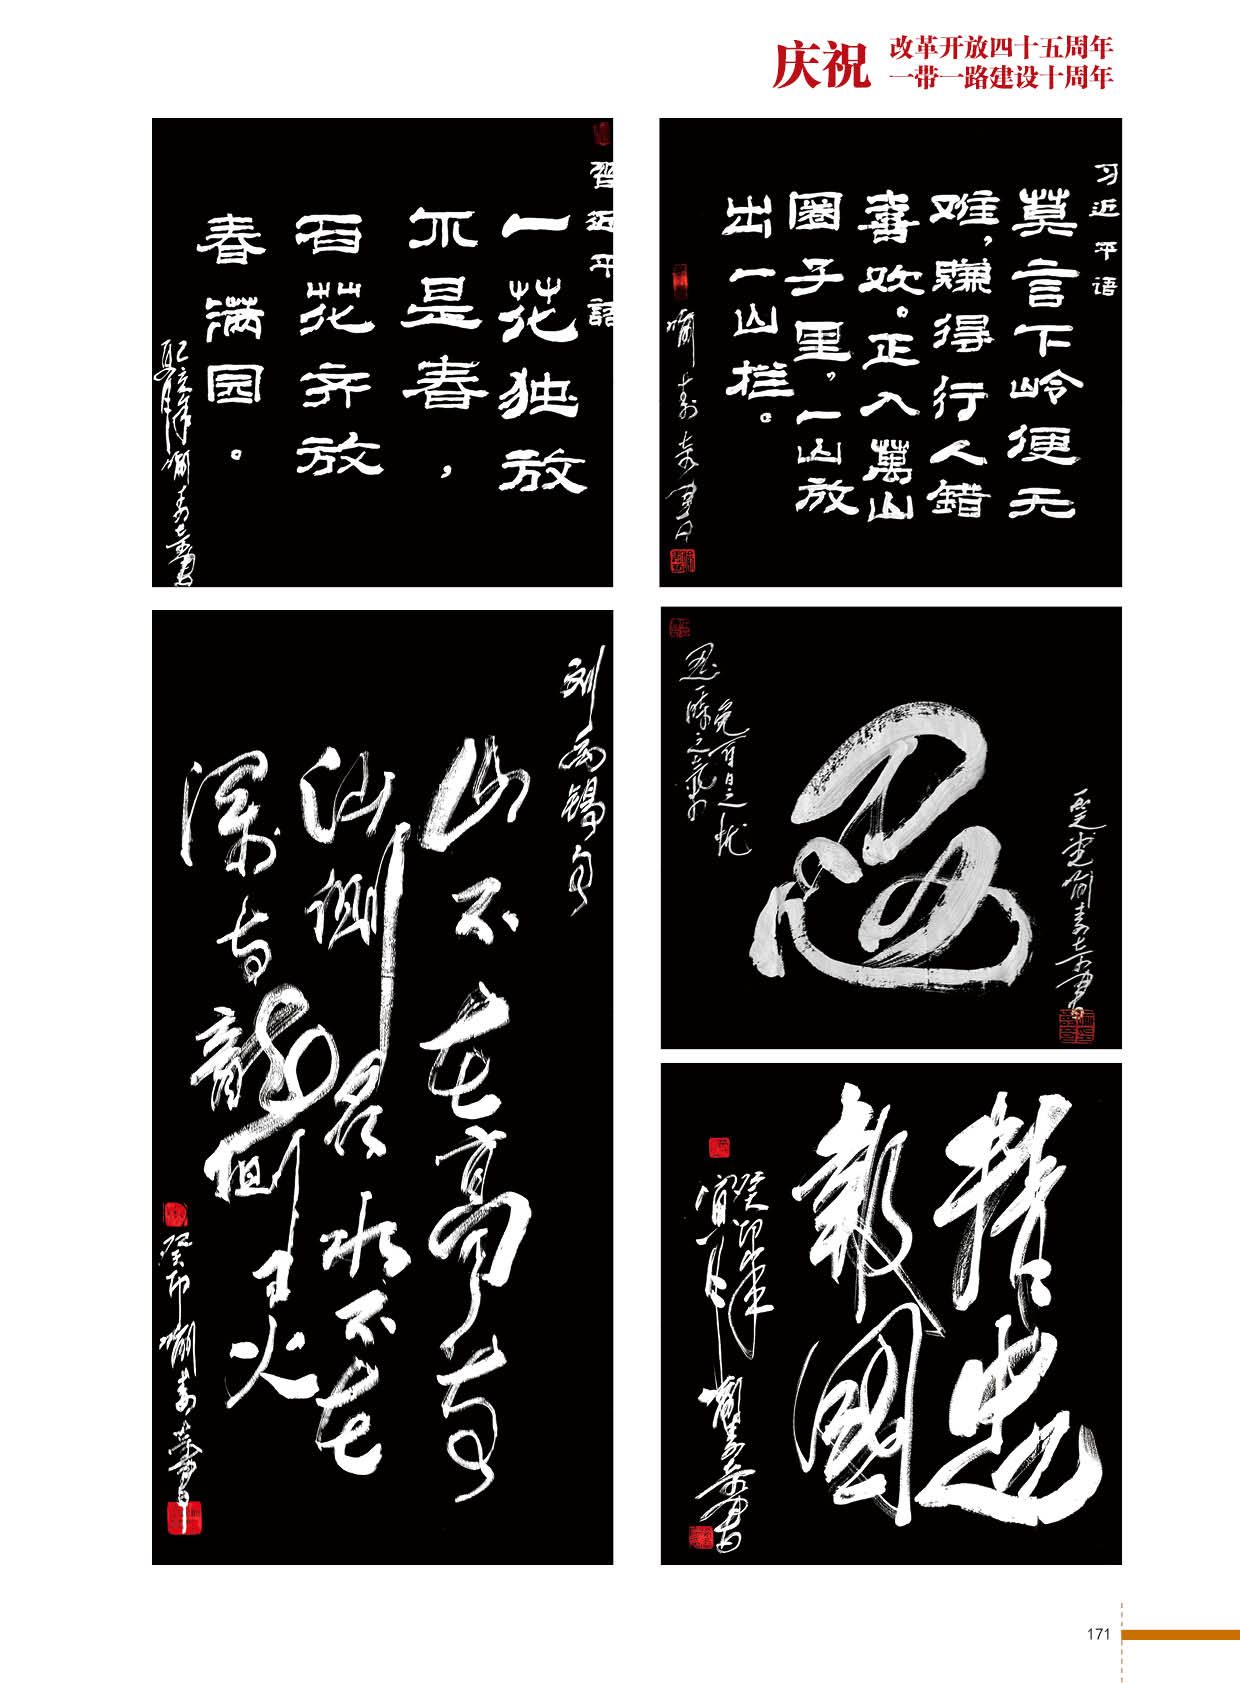 庆祝
改革开放四十五周年
一带一路建设十周年
習近平語
一花独放
不是春，
百花齐放
春满园。
习近平语
莫言下岭便无
难，赚得行人错
喜欢。正入萬山
圈子里，一山放
出一山拦。
刘禹锡句
山不在高有
仙則名水不在
深有龍則灵
癸卯
忍
忍一時之氣
免百日之忧
精忠
報國
癸卯年
171